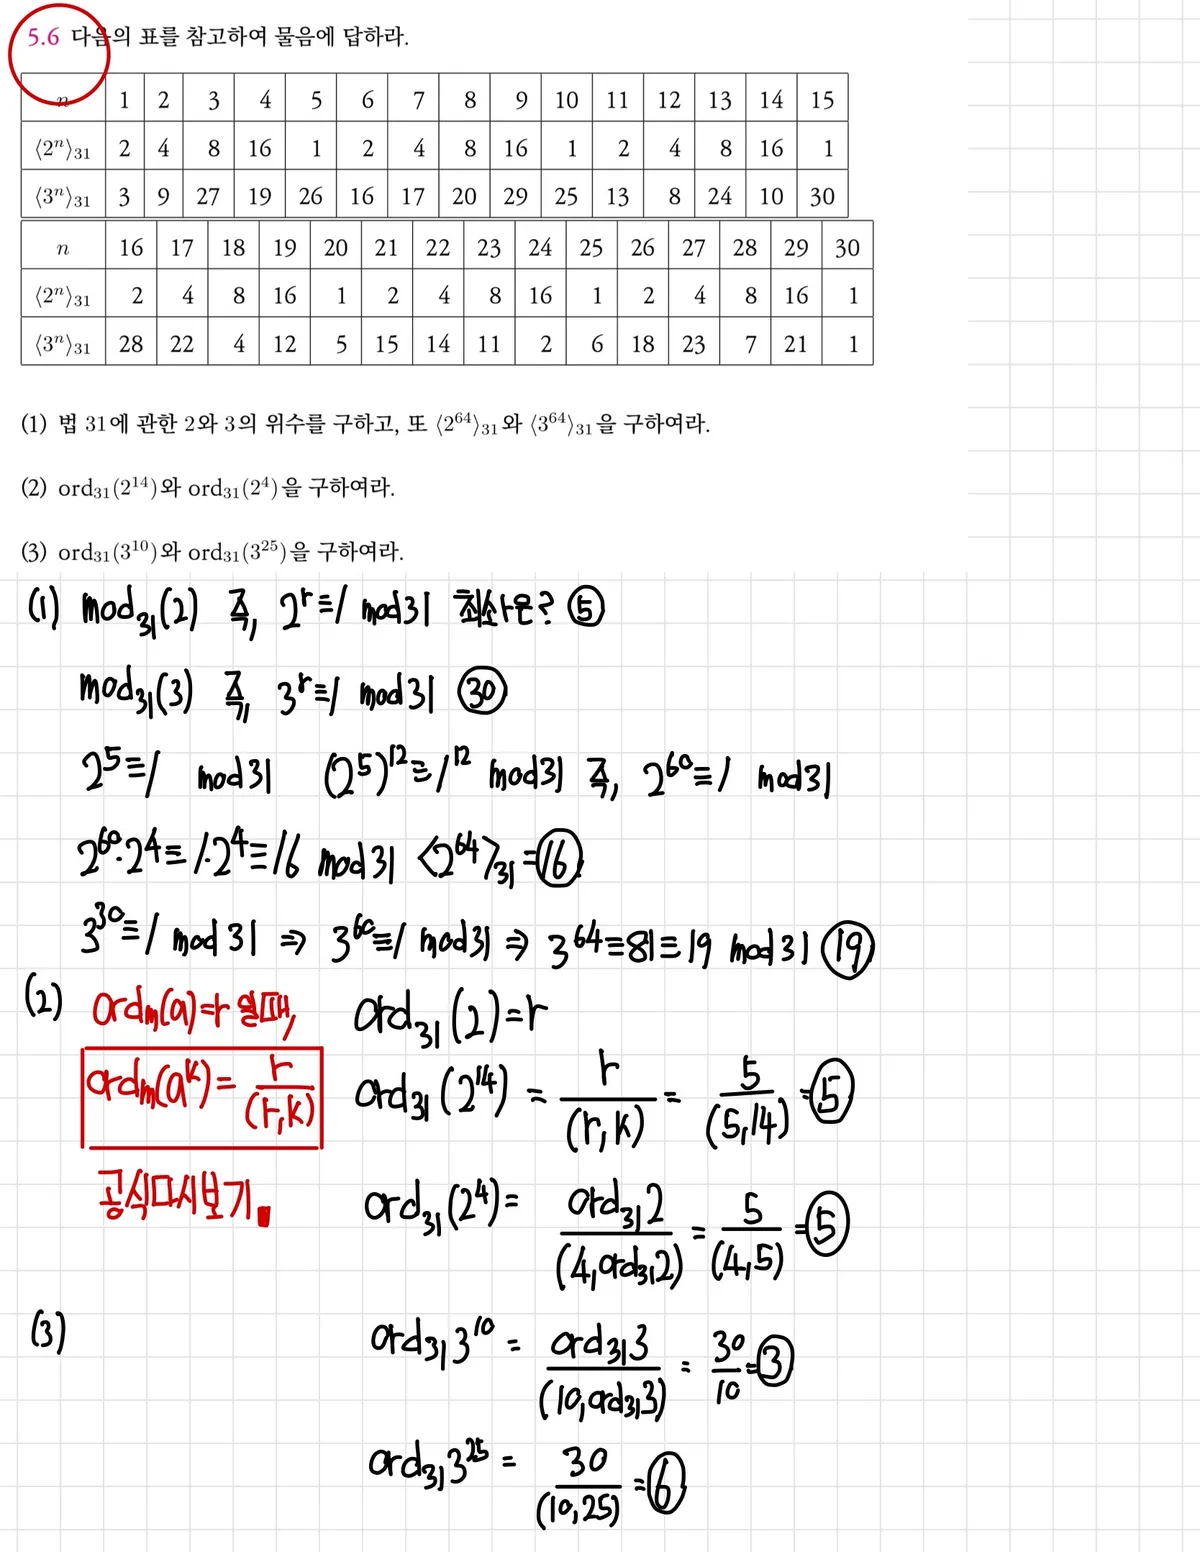 5.6 다음의 표를 참고하여 물음에 답하라.
n 1 2 3 4 5 6 7 8 9 10 11 12 13 14 15
⟨2ⁿ⟩₃₁ 2 4 8 16 1 2 4 8 16 1 2 4 8 16 1
⟨3ⁿ⟩₃₁ 3 9 27 19 26 16 17 20 29 25 13 8 24 10 30
n 16 17 18 19 20 21 22 23 24 25 26 27 28 29 30
⟨2ⁿ⟩₃₁ 2 4 8 16 1 2 4 8 16 1 2 4 8 16 1
⟨3ⁿ⟩₃₁ 28 22 4 12 5 15 14 11 2 6 18 23 7 21 1
(1) 법 31에 관한 2와 3의 위수를 구하고, 또 ⟨2⁶⁴⟩₃₁와 ⟨3⁶⁴⟩₃₁을 구하여라.
(2) ord₃₁(2¹⁴)와 ord₃₁(2⁴)을 구하여라.
(3) ord₃₁(3¹⁰)와 ord₃₁(3²⁵)을 구하여라.
(1) mod₃₁(2) 즉, 2ʳ≡1 mod31 최소값은? ⑤
mod₃₁(3) 즉, 3ʳ≡1 mod31 ㉚
2⁵≡1 mod31 (2⁵)¹²≡1¹² mod31 즉, 2⁶⁰≡1 mod31
2⁶⁰·2⁴≡1·2⁴≡16 mod31 <2⁶⁴>₃₁=⑯
3³⁰≡1 mod31 ⇒ 3⁶⁰≡1 mod31 ⇒ 3⁶⁴≡81≡19 mod31 ⑲
(2) ordₘ(a)=r 일때, ord₃₁(2)=r
ordₘ(aᵏ)= r/(r,k) ord₃₁(2¹⁴) = r/(r,k) = 5/(5,14) =⑤
공식다시보기. ord₃₁(2⁴)= ord₃₁2/(4,ord₃₁2) = 5/(4,5) =⑤
(3) ord₃₁3¹⁰ = ord₃₁3/(10,ord₃₁3) = 30/10 =③
ord₃₁3²⁵ = 30/(10,25) =⑥